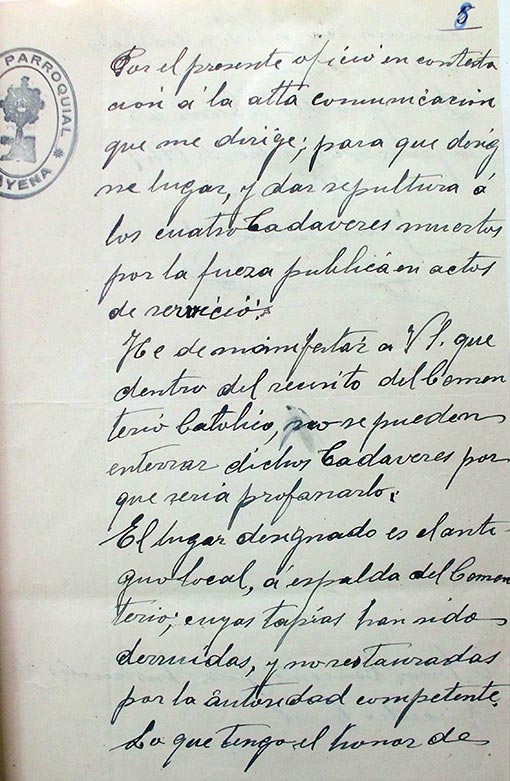 8
PARROQUIAL
YENA
Por el presente oficio en contesta
ción á la atta comunicación
que me dirige; para que desig
ne lugar, y dar sepultura á
los cuatro Cadaveres muertos
por la fueza publica en actos
de servicio.
He de manifestar a Vl. que
dentro del recinto del Cemen
terio Catolico, no se pueden
enterrar dichos Cadaveres por
que seria profanarlo.
El lugar designado es el anti-
guo local, á espalda del Cemen
terio; cuyas tapias han sido
derruidas, y no restauradas
por la autoridad competente.
Lo que tengo el honor de